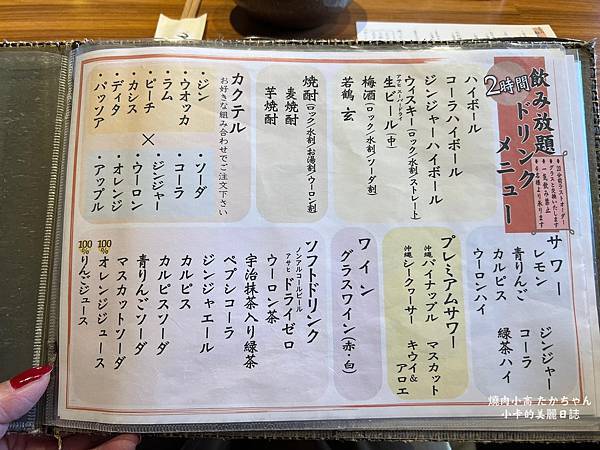 2時間
飲み放題
ドリンク
メニュー
＊グラスと交換いたします
＊一気飲み禁止
ハイボール
コーラハイボール
ジンジャーハイボール
ウィスキー(ロック/水割/ストレート)
アサヒスーパードライ
生ビール(中)
梅酒(ロック/水割/ソーダ割)
若鶴 玄
焼酎(ロック/水割/お湯割/ウーロン割)
麦焼酎
芋焼酎
カクテル
お好きな組み合わせでご注文下さい
・ジン
・ウオッカ
・ラム
・ピーチ
・カシス
・ディタ
・パッソア
×
・ソーダ
・コーラ
・ジンジャー
・ウーロン
・オレンジ
・アップル
サワー
レモン
青りんご
カルピス
ウーロンハイ
ジンジャー
コーラ
緑茶ハイ
プレミアムサワー
沖縄パイナップル
沖縄シークヮーサー
マスカット
キウイ&アロエ
ワイン
グラスワイン(赤・白)
ソフトドリンク
ノンアルコールビール
アサヒ ドライゼロ
ウーロン茶
宇治抹茶入り緑茶
ペプシコーラ
ジンジャエール
カルピス
カルピスソーダ
青りんごソーダ
マスカットソーダ
100%オレンジジュース
100%りんごジュース
燒肉小高 たかちゃん
小卡的美麗日誌